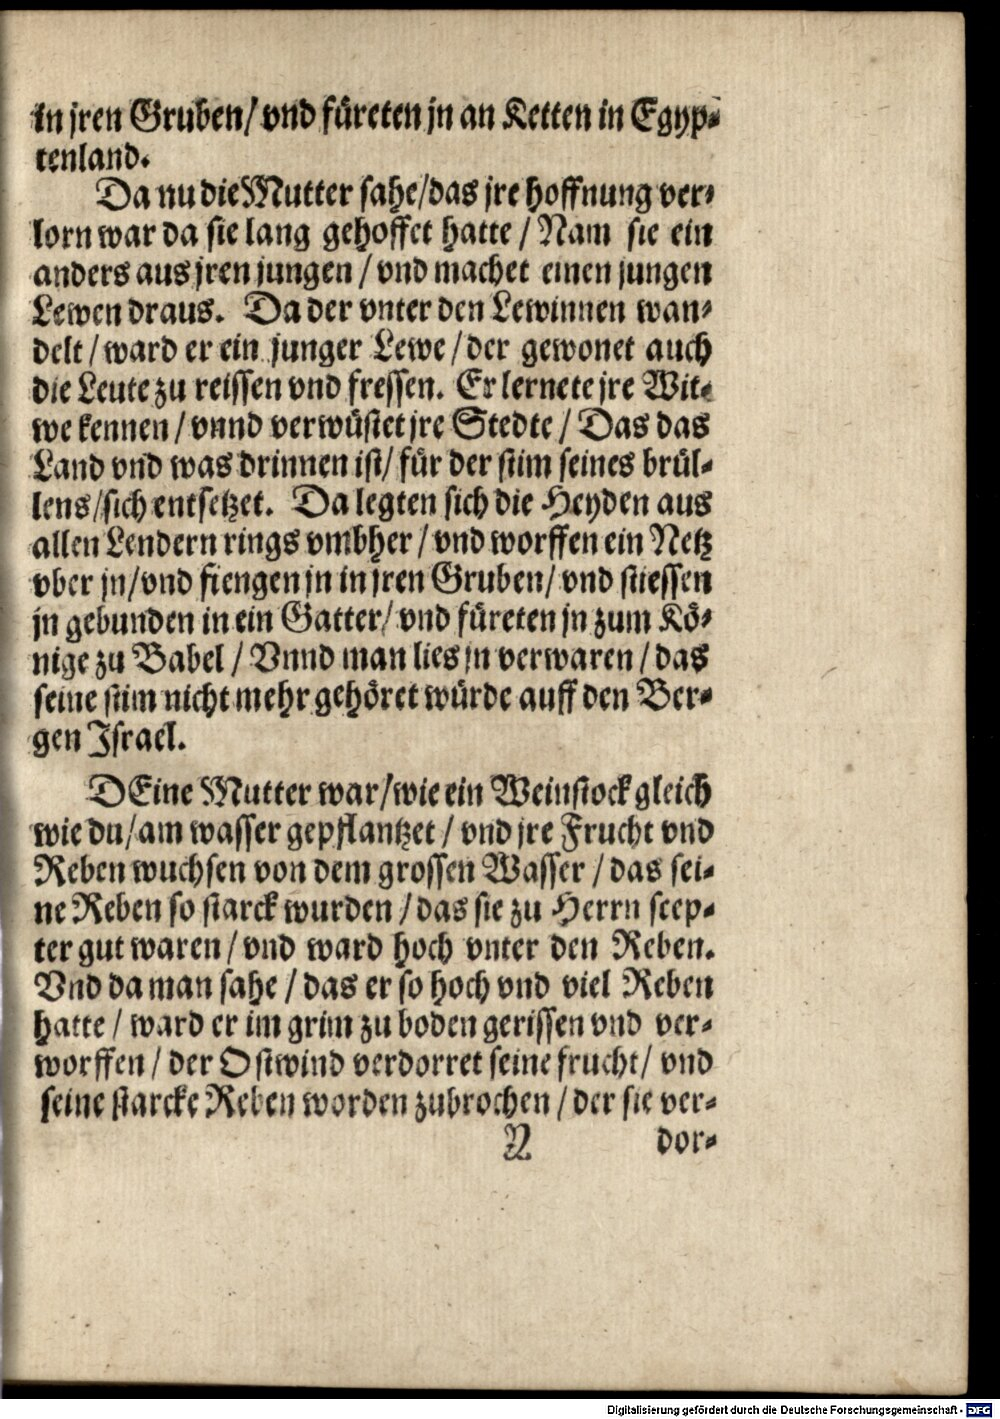 in jren Gruben/ vnd füreten jn an Ketten in Egyp⸗
tenland.
Da nu die Mutter sahe/das jre hoffnung ver⸗
lorn war da sie lang gehoffet hatte / Nam sie ein
anders aus jren jungen / vnd machet einen jungen
Lewen draus. Da der vnter den Lewinnen wan⸗
delt / ward er ein junger Lewe / der gewonet auch
die Leute zu reissen vnd fressen. Er lernete jre Wit⸗
we kennen / vnnd verwüstet jre Stedte / Das das
Land vnd was drinnen ist/ für der stim seines brül⸗
lens/sich entsetzet. Da legten sich die Heyden aus
allen Lendern rings vmbher / vnd worffen ein Netz
vber jn/vnd fiengen jn in jren Gruben/ vnd stiessen
jn gebunden in ein Gatter/ vnd füreten jn zum Kö⸗
nige zu Babel / Vnnd man lies jn verwaren / das
seine stim nicht mehr gehöret würde auff den Ber⸗
gen Israel.
DEine Mutter war/wie ein Weinstock gleich
wie du/am wasser gepflantzet / vnd jre Frucht vnd
Reben wuchsen von dem grossen Wasser / das sei⸗
ne Reben so starck wurden / das sie zu Herrn scep⸗
ter gut waren / vnd ward hoch vnter den Reben.
Vnd da man sahe / das er so hoch vnd viel Reben
hatte / ward er im grim zu boden gerissen vnd ver⸗
worffen / der Ostwind verdorret seine frucht/ vnd
seine starcke Reben worden zubrochen / der sie ver⸗
N dor⸗
Digitalisierung gefördert durch die Deutsche Forschungsgemeinschaft - DFG